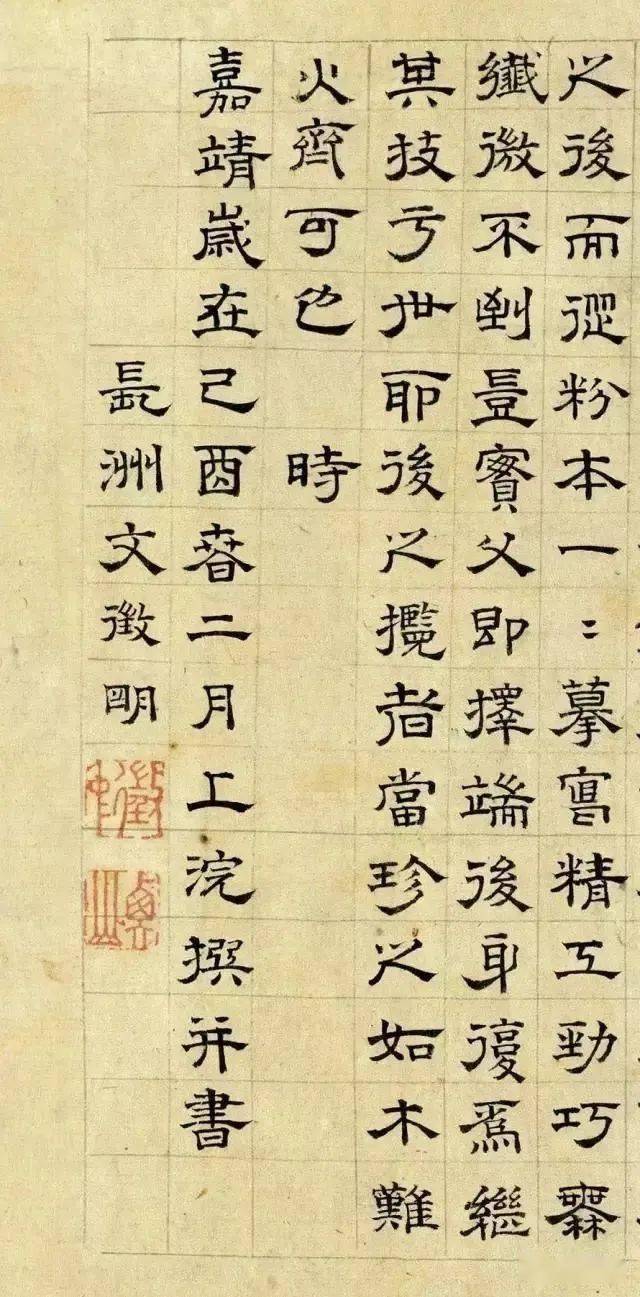 之後而從粉本一〻摹寫精工勁巧橆
纖微不到豈實父即擇端後身復爲繼
其技于世耶後之攬者當珍之如木難
火齊可也 時
嘉靖歲在己酉春二月上浣撰并書
長洲文徵明
徵仲
衡山